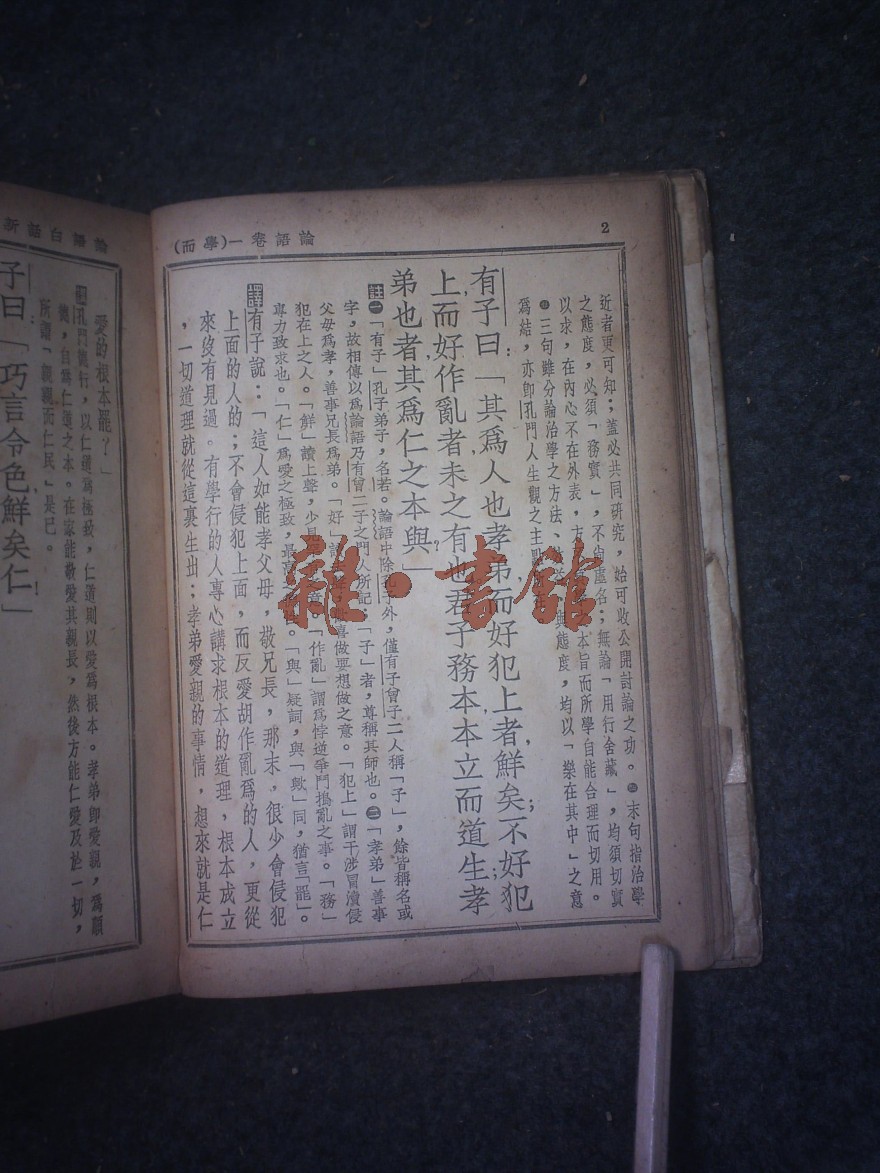 2
論語卷一(學而)
近者更可知；蓋必共同研究，始可收公開討論之功。㊁末句指治學
之態度，必須「務實」，不尚虛名；無論「用行舍藏」，均須切實
以求，在內心不在外表，方 本旨而所學自能合理而切用。
㊂三句雖分論治學之方法、 與態度，均以「樂在其中」之意
爲結，亦卽孔門人生觀之主
有子曰：「其爲人也孝弟而好犯上者，鮮矣；不好犯
上，而好作亂者，未之有也君子務本本立而道生；孝
弟也者其爲仁之本與？」
註㊀「有子」孔子弟子，名若。論語中除孔子外，僅有子曾子二人稱「子」，餘皆稱名或
字，故相傳以爲論語乃有曾二子之門人所記；「子」者，尊稱其師也。㊁「孝弟」善事
父母爲孝，善事兄長爲弟。「好」 喜做要想做之意。「犯上」謂干涉冒瀆侵
犯在上之人。「鮮」讀上聲，少見 意。「作亂」謂爲悖逆爭鬥搗亂之事。「務」
專力致求也。「仁」爲愛之極致，最 「與」疑詞，與「歟」同，猶言「罷」。
譯有子說：「這人如能孝父母，敬兄長，那末，很少會侵犯
上面的人的；不會侵犯上面，而反愛胡作亂爲的人，更從
來沒有見過。有學行的人專心講求根本的道理，根本成立
，一切道理就從這裏生出；孝弟愛親的事情，想來就是仁
論語白話新
愛的根本罷？」
孔門德行，以仁德爲極致，仁道則以愛爲根本。孝弟卽愛親，爲順
德，自爲仁德之本。在家能敬愛其親長，然後方能仁愛及於一切，
所謂「親親而仁民」是已。
子曰：「巧言令色，鮮矣仁！」
雜·書館